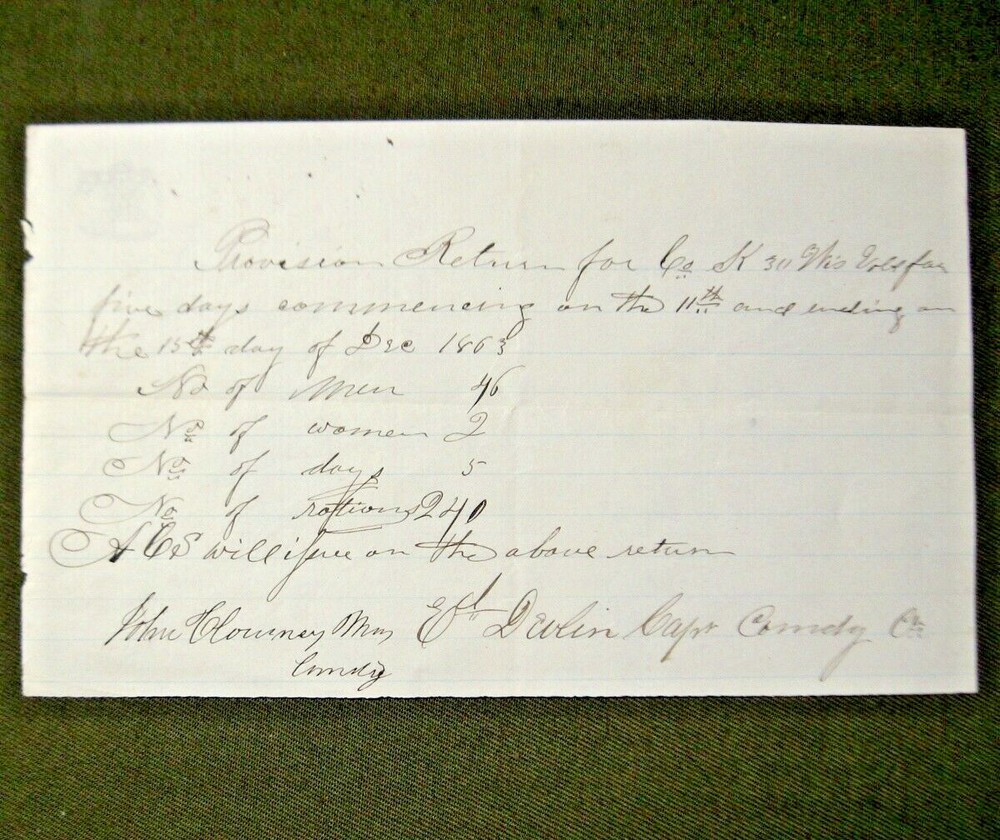 Provision Return for Co K 30 Wis Vols for
five days commencing on the 11th and ending on
the 15th day of Dec 1863
No of Men 46
No of women 2
No of days 5
No of rations 240
A C S will issue on the above return
John Clowney Maj Ed Devlin Capt Comdg Co
Comdg